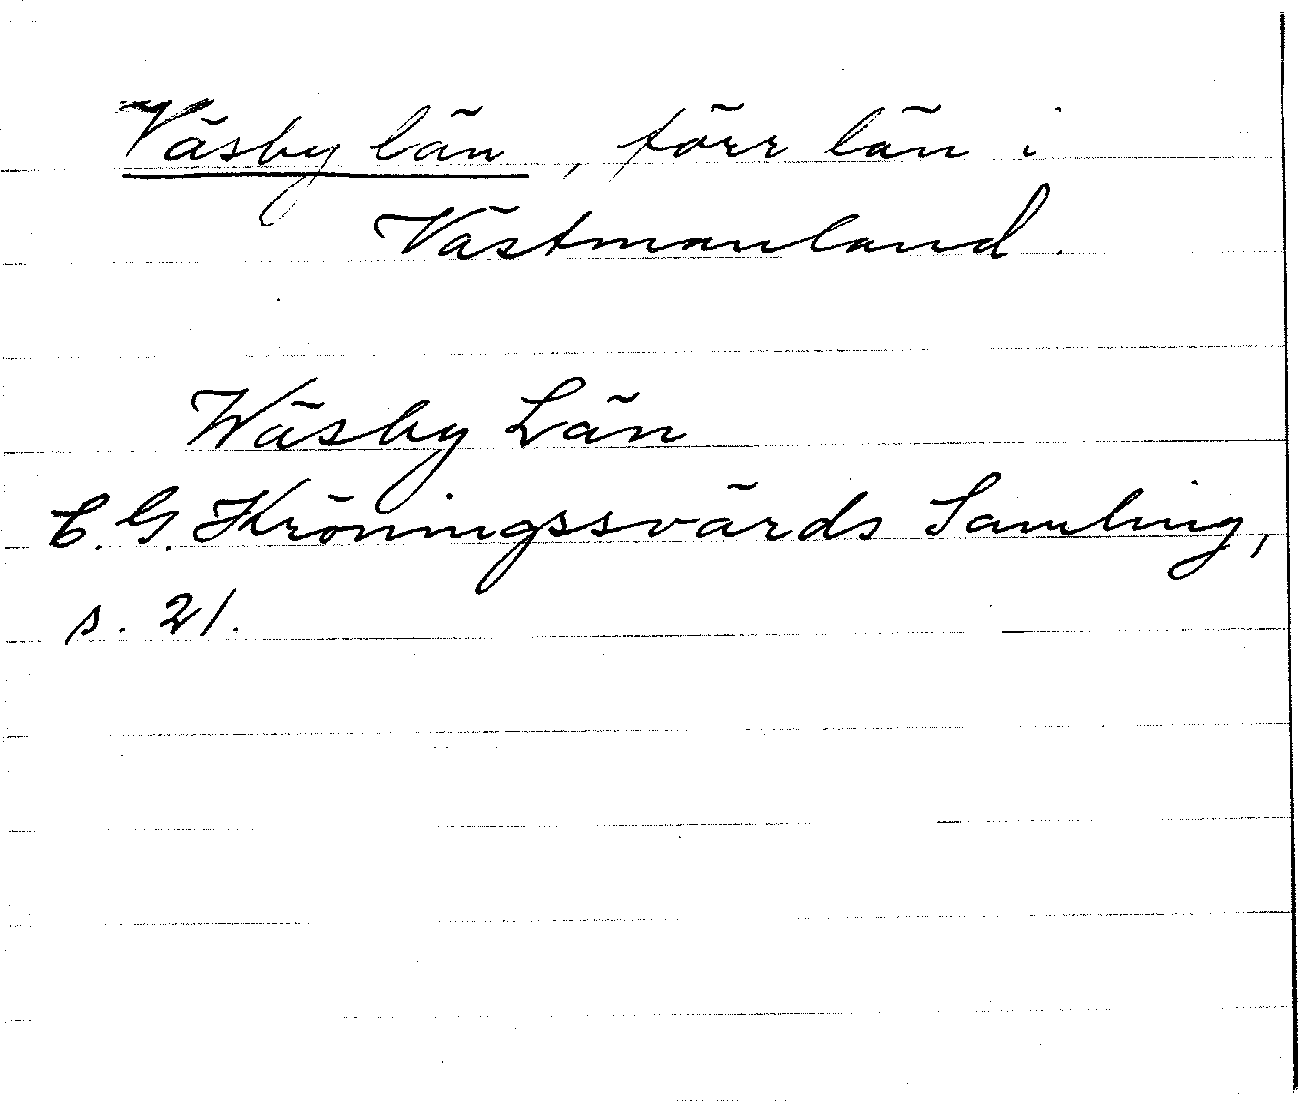 Väsby län, förr län i
Västmanland.
Wäsby Län
C. G. Kröningssvärds Samling,
s. 21.